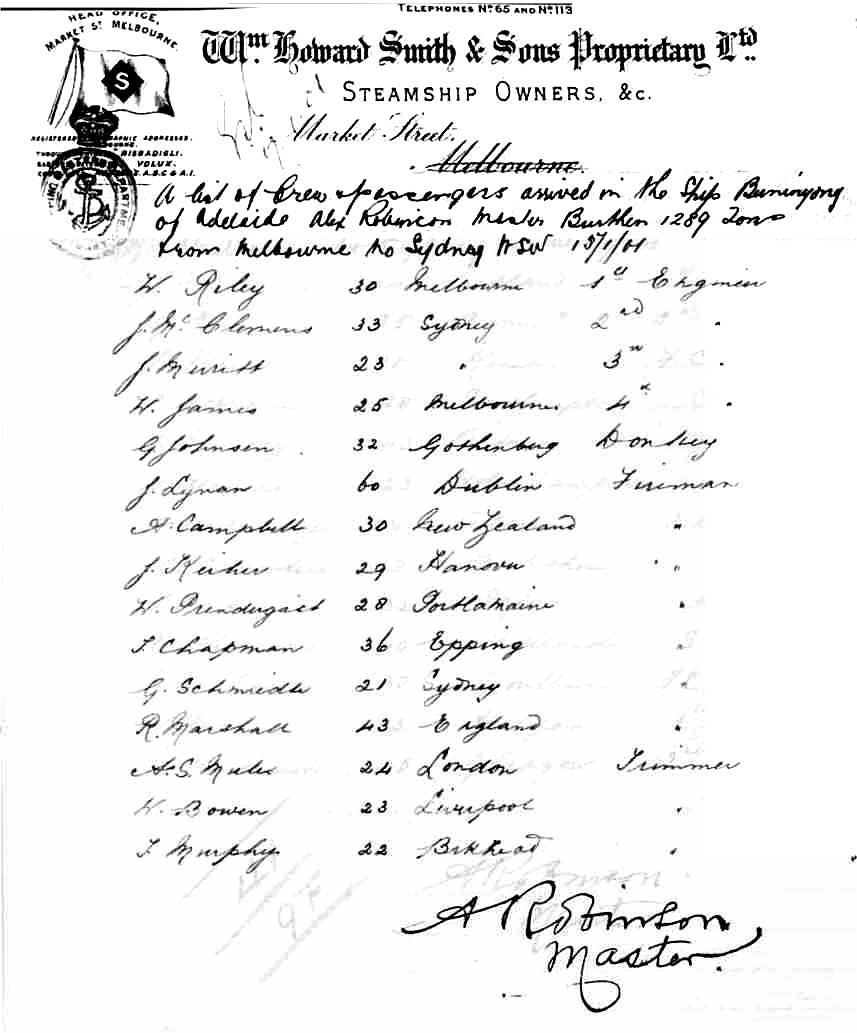 TELEPHONES Nº 65 AND Nº 113
HEAD OFFICE,
MARKET ST MELBOURNE.
S
Wm. Howard Smith & Sons Proprietary Ltd.
STEAMSHIP OWNERS, &c.
Market Street,
Melbourne.
VOLUX.
A list of Crew & passengers arrived in the Ship Buninyong
of Adelaide Alex Robinson Master Burthen 1289 Tons
from Melbourne to Sydney NSW 15/1/01
W. Riley 30 Melbourne 1st Engineer
J. Mc Clemens 33 Sydney 2nd "
J. Merritt 23 " 3rd "
W. James 25 Melbourne 4th "
G Johnsen 32 Gothenburg Donkey
J. Lynan 60 Dublin Fireman
A. Campbell 30 New Zealand "
J. 29 Hanover "
W. Prendergast 28 "
T. Chapman 36 Epping "
G. Schmidle 21 Sydney "
R. Marshall 43 England "
A. S. Miles 24 London Trimmer
W. Bowen 23 Liverpool "
T. Murphy 22 "
A Robinson
Master.